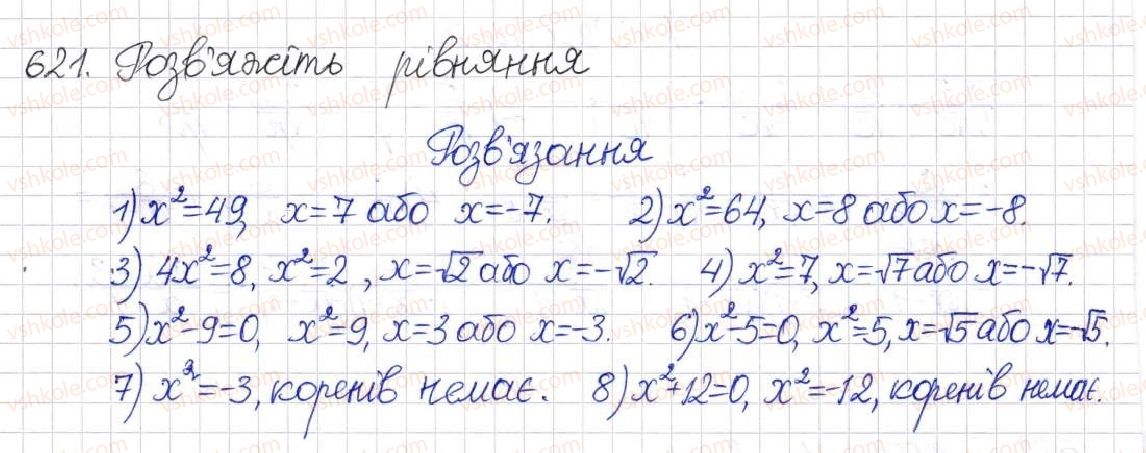 621. Розв'яжіть рівняння
Розв'язання
1) x²=49, x=7 або x=-7. 2) x²=64, x=8 або x=-8.
3) 4x²=8, x²=2, x=√2 або x=-√2. 4) x²=7, x=√7 або x=-√7.
5) x²-9=0, x²=9, x=3 або x=-3. 6) x²-5=0, x²=5, x=√5 або x=-√5.
7) x²=-3, коренів немає. 8) x²+12=0, x²=-12, коренів немає.